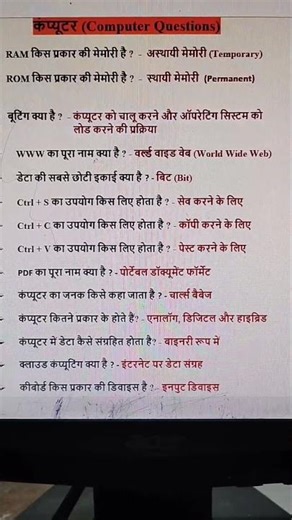 कंप्यूटर (Computer Questions)
RAM किस प्रकार की मेमोरी है ? - अस्थायी मेमोरी (Temporary)
ROM किस प्रकार की मेमोरी है ? - स्थायी मेमोरी (Permanent)
बूटिंग क्या है ? - कंप्यूटर को चालू करने और ऑपरेटिंग सिस्टम को
लोड करने की प्रक्रिया
WWW का पूरा नाम क्या है ? - वर्ल्ड वाइड वेब (World Wide Web)
डेटा की सबसे छोटी इकाई क्या है - बिट (Bit)
Ctrl + S का उपयोग किस लिए होता है ? - सेव करने के लिए
Ctrl + C का उपयोग किस लिए होता है ? - कॉपी करने के लिए
Ctrl + V का उपयोग किस लिए होता है ? - पेस्ट करने के लिए
PDF का पूरा नाम क्या है ? - पोर्टेबल डॉक्यूमेंट फॉर्मेट
कंप्यूटर का जनक किसे कहा जाता है ? - चार्ल्स बैबेज
कंप्यूटर कितने प्रकार के होते हैं? - एनालॉग, डिजिटल और हाइब्रिड
कंप्यूटर में डेटा कैसे संग्रहित होता है? - बाइनरी रूप में
क्लाउड कंप्यूटिंग क्या है ? - इंटरनेट पर डेटा संग्रह
कीबोर्ड किस प्रकार की डिवाइस है ? - इनपुट डिवाइस